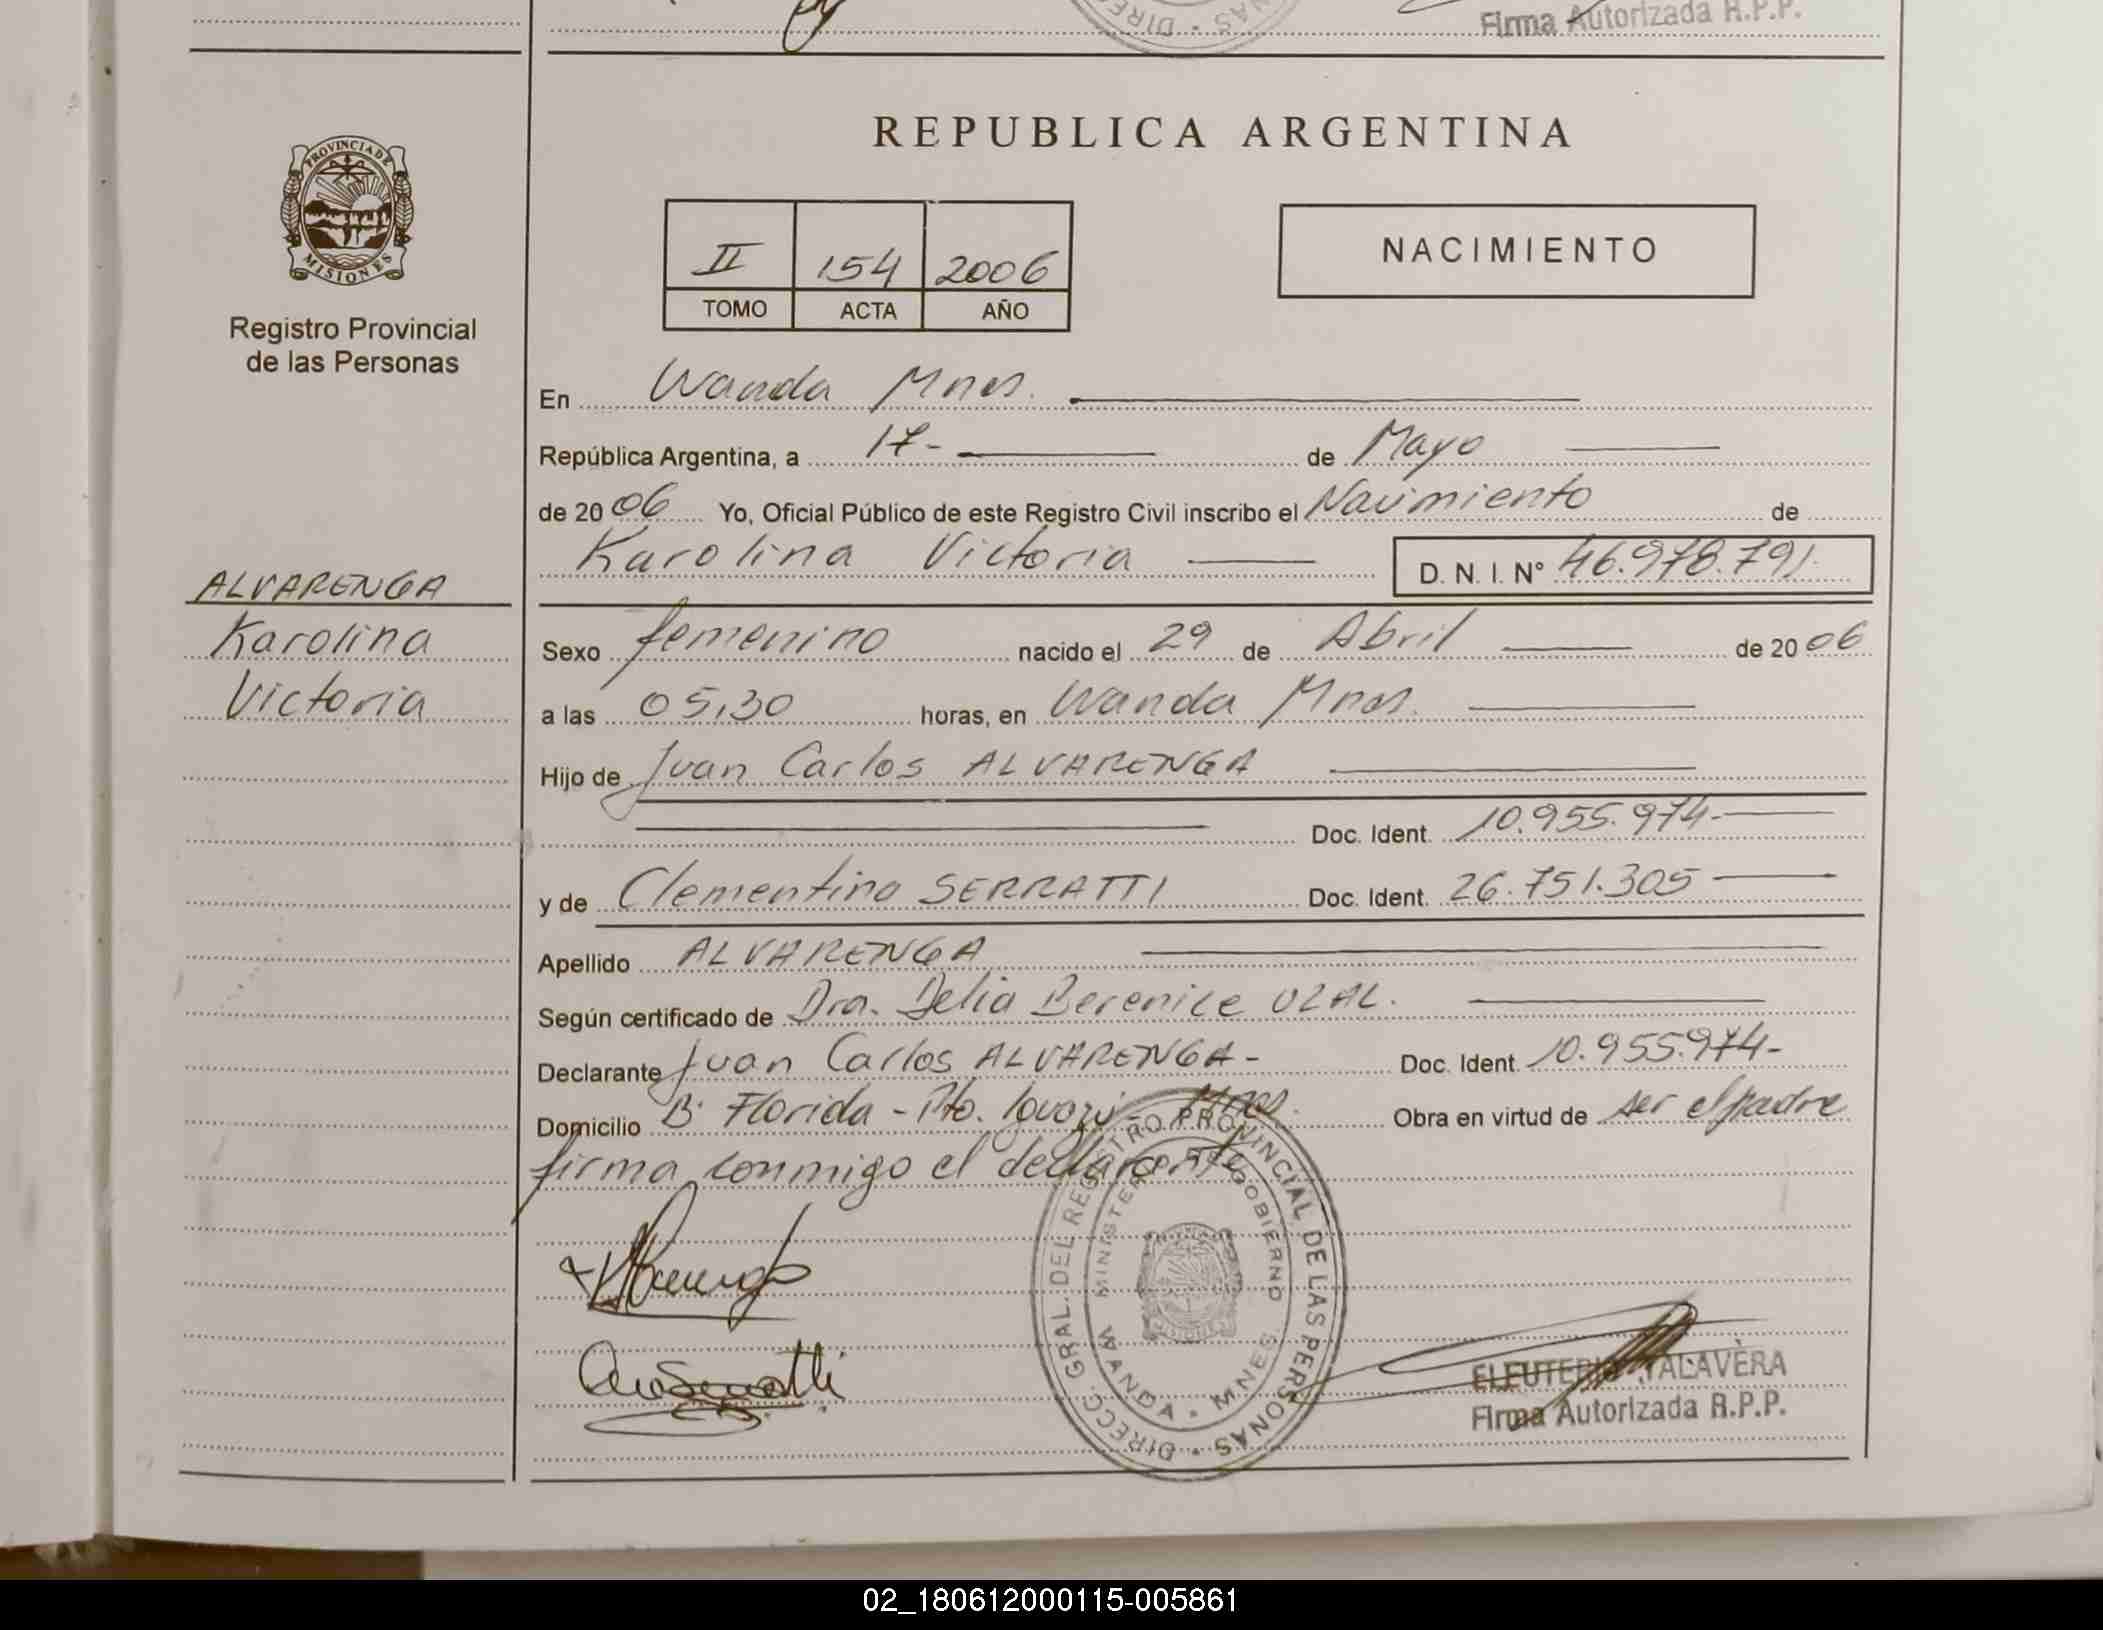 Firma Autorizada R.P.P.
PROVINCIA DE
MISIONES
Registro Provincial
de las Personas
ALVARENGA
Karolina
Victoria
REPUBLICA ARGENTINA
II 154 2006
TOMO ACTA AÑO
NACIMIENTO
En Wanda Mnes.
República Argentina, a 17- de Mayo
de 2006 Yo, Oficial Público de este Registro Civil inscribo el Nacimiento de
Karolina Victoria D. N. I. N° 46.978.791.
Sexo femenino nacido el 29 de Abril de 2006
a las 05,30 horas, en Wanda Mnes.
Hijo de Juan Carlos ALVARENGA
Doc. Ident. 10.955.974-
y de Clementina SERRATTI Doc. Ident. 26.751.305
Apellido ALVARENGA
Según certificado de Dra. Delia Berenice UZAL.
Declarante Juan Carlos ALVARENGA- Doc. Ident. 10.955.974-
Domicilio B: Florida - Pto. Mnes. Obra en virtud de ser el padre
firma conmigo el declarante
DIRECC. GRAL. DEL REGISTRO PROVINCIAL DE LAS PERSONAS
MINISTERIO DE GOBIERNO
WANDA - MNES
ELEUTERIO TALAVERA
Firma Autorizada R.P.P.
02_180612000115-005861